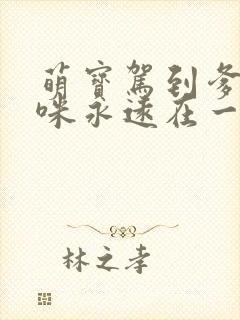 萌宝駕到爹
咪永遠在一
林之孝